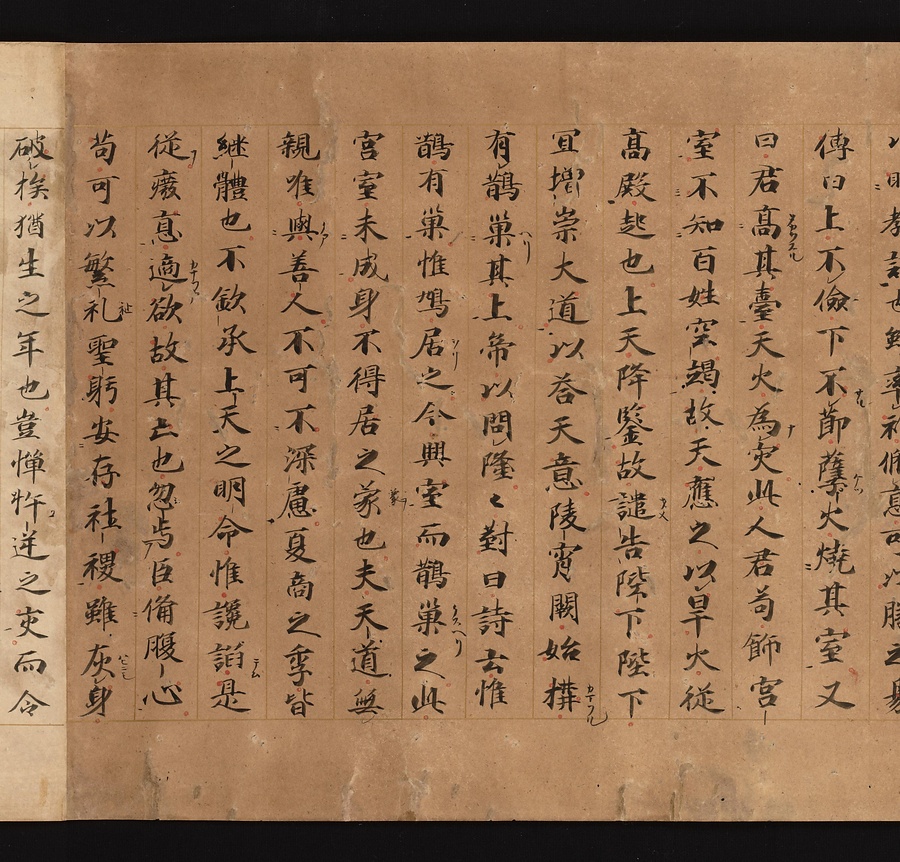 傳曰上不儉下不節孽火燒其室又
曰君高其臺天火為灾此人君苟飾宮
室不知百姓空竭故天應之以旱火従
高殿起也上天降鑒故譴告陛下陛下
宜增崇大道以荅天意陵霄闕始構
有鵲巣其上帝以問隆〻對曰詩云惟
鵲有巣惟鳩居之今興室而鵲巣之此
宮室未成身不得居之象也夫天道無
親唯與善人不可不深慮夏商之季皆
継體也不欽承上天之明命惟讒諂是
従癈悳適欲故其亡也忽焉臣備腹心
苟可以繁礼聖躬安存社稷雖灰身
破族猶生之年也豈憚忤逆之灾而令